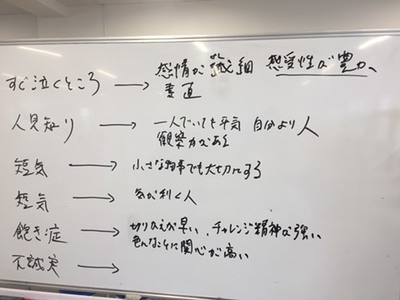 すぐ泣くところ → 感情が繊細 感受性が豊か、
素直
人見知り → 一人でいても平気 自分より人
観察力がある
短気 → 小さな物事でも大切にする
短気 → 気が利く人
飽き症 → 切りかえが早い、チャレンジ精神が強い
色んなことに関心が高い
不誠実 →